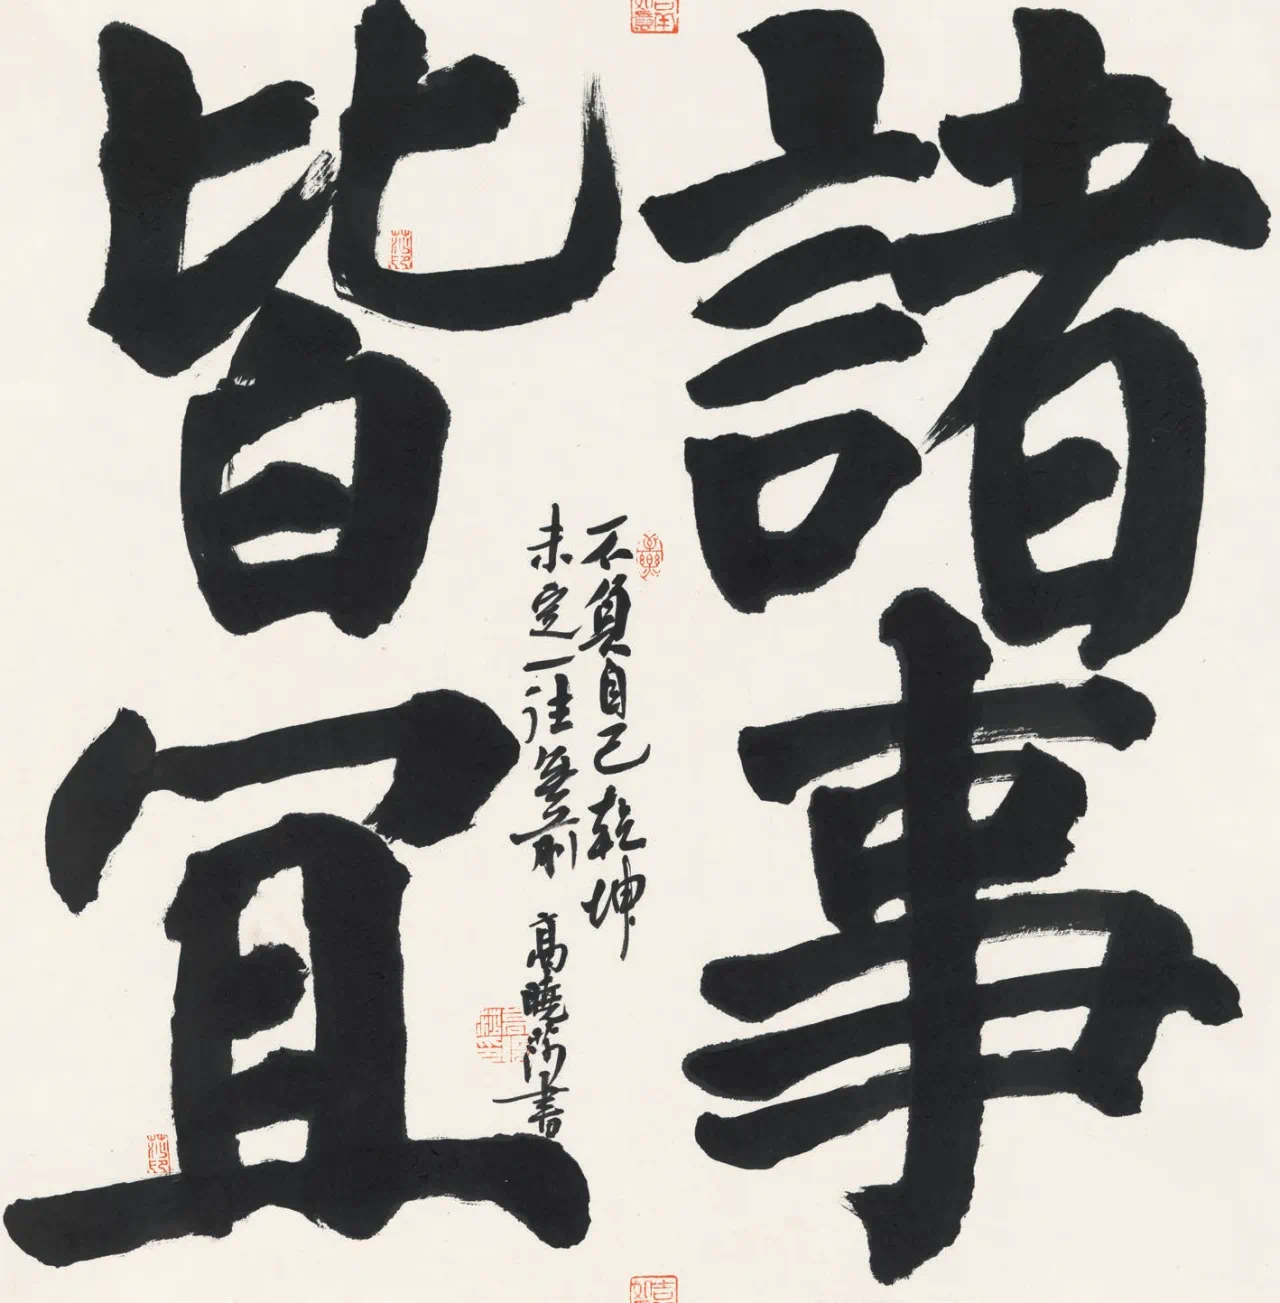 諸事
皆宜
不負自己乾坤
未定一往無前
高曉莎書